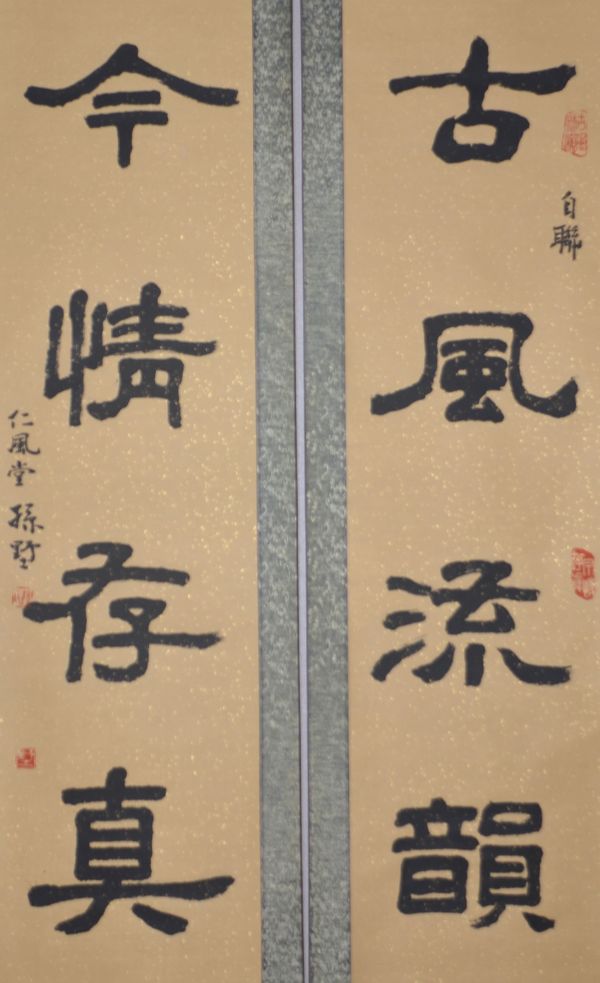 古風流韻
自聯
今情存真
仁風堂孫墅